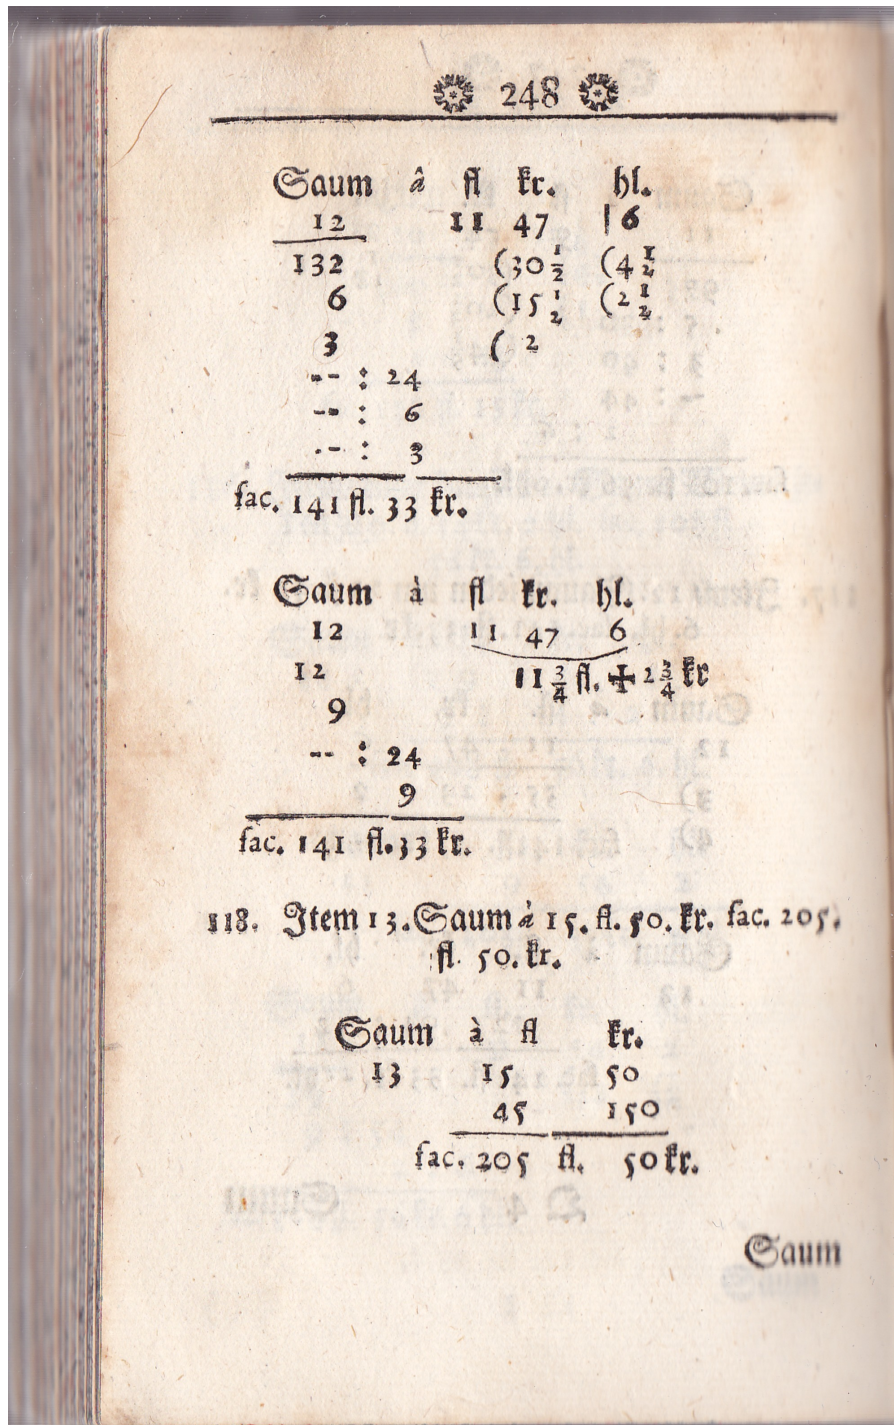 248
Saum â fl kr. hl.
12 11 47 | 6
132 (30 1/2 (4 1/2
6 (15 1/2 (2 1/2
3 ( 2
-- : 24
-- : 6
-- : 3
fac. 141 fl. 33 kr.
Saum à fl kr. hl.
12 11 47 6
12 11 3/4 fl. + 2 3/4 kr
9
-- : 24
9
fac. 141 fl. 33 kr.
118. Item 13. Saum à 15. fl. 50. kr. fac. 205.
fl. 50. kr.
Saum à fl kr.
13 15 50
45 150
fac. 205 fl. 50 kr.
Saum